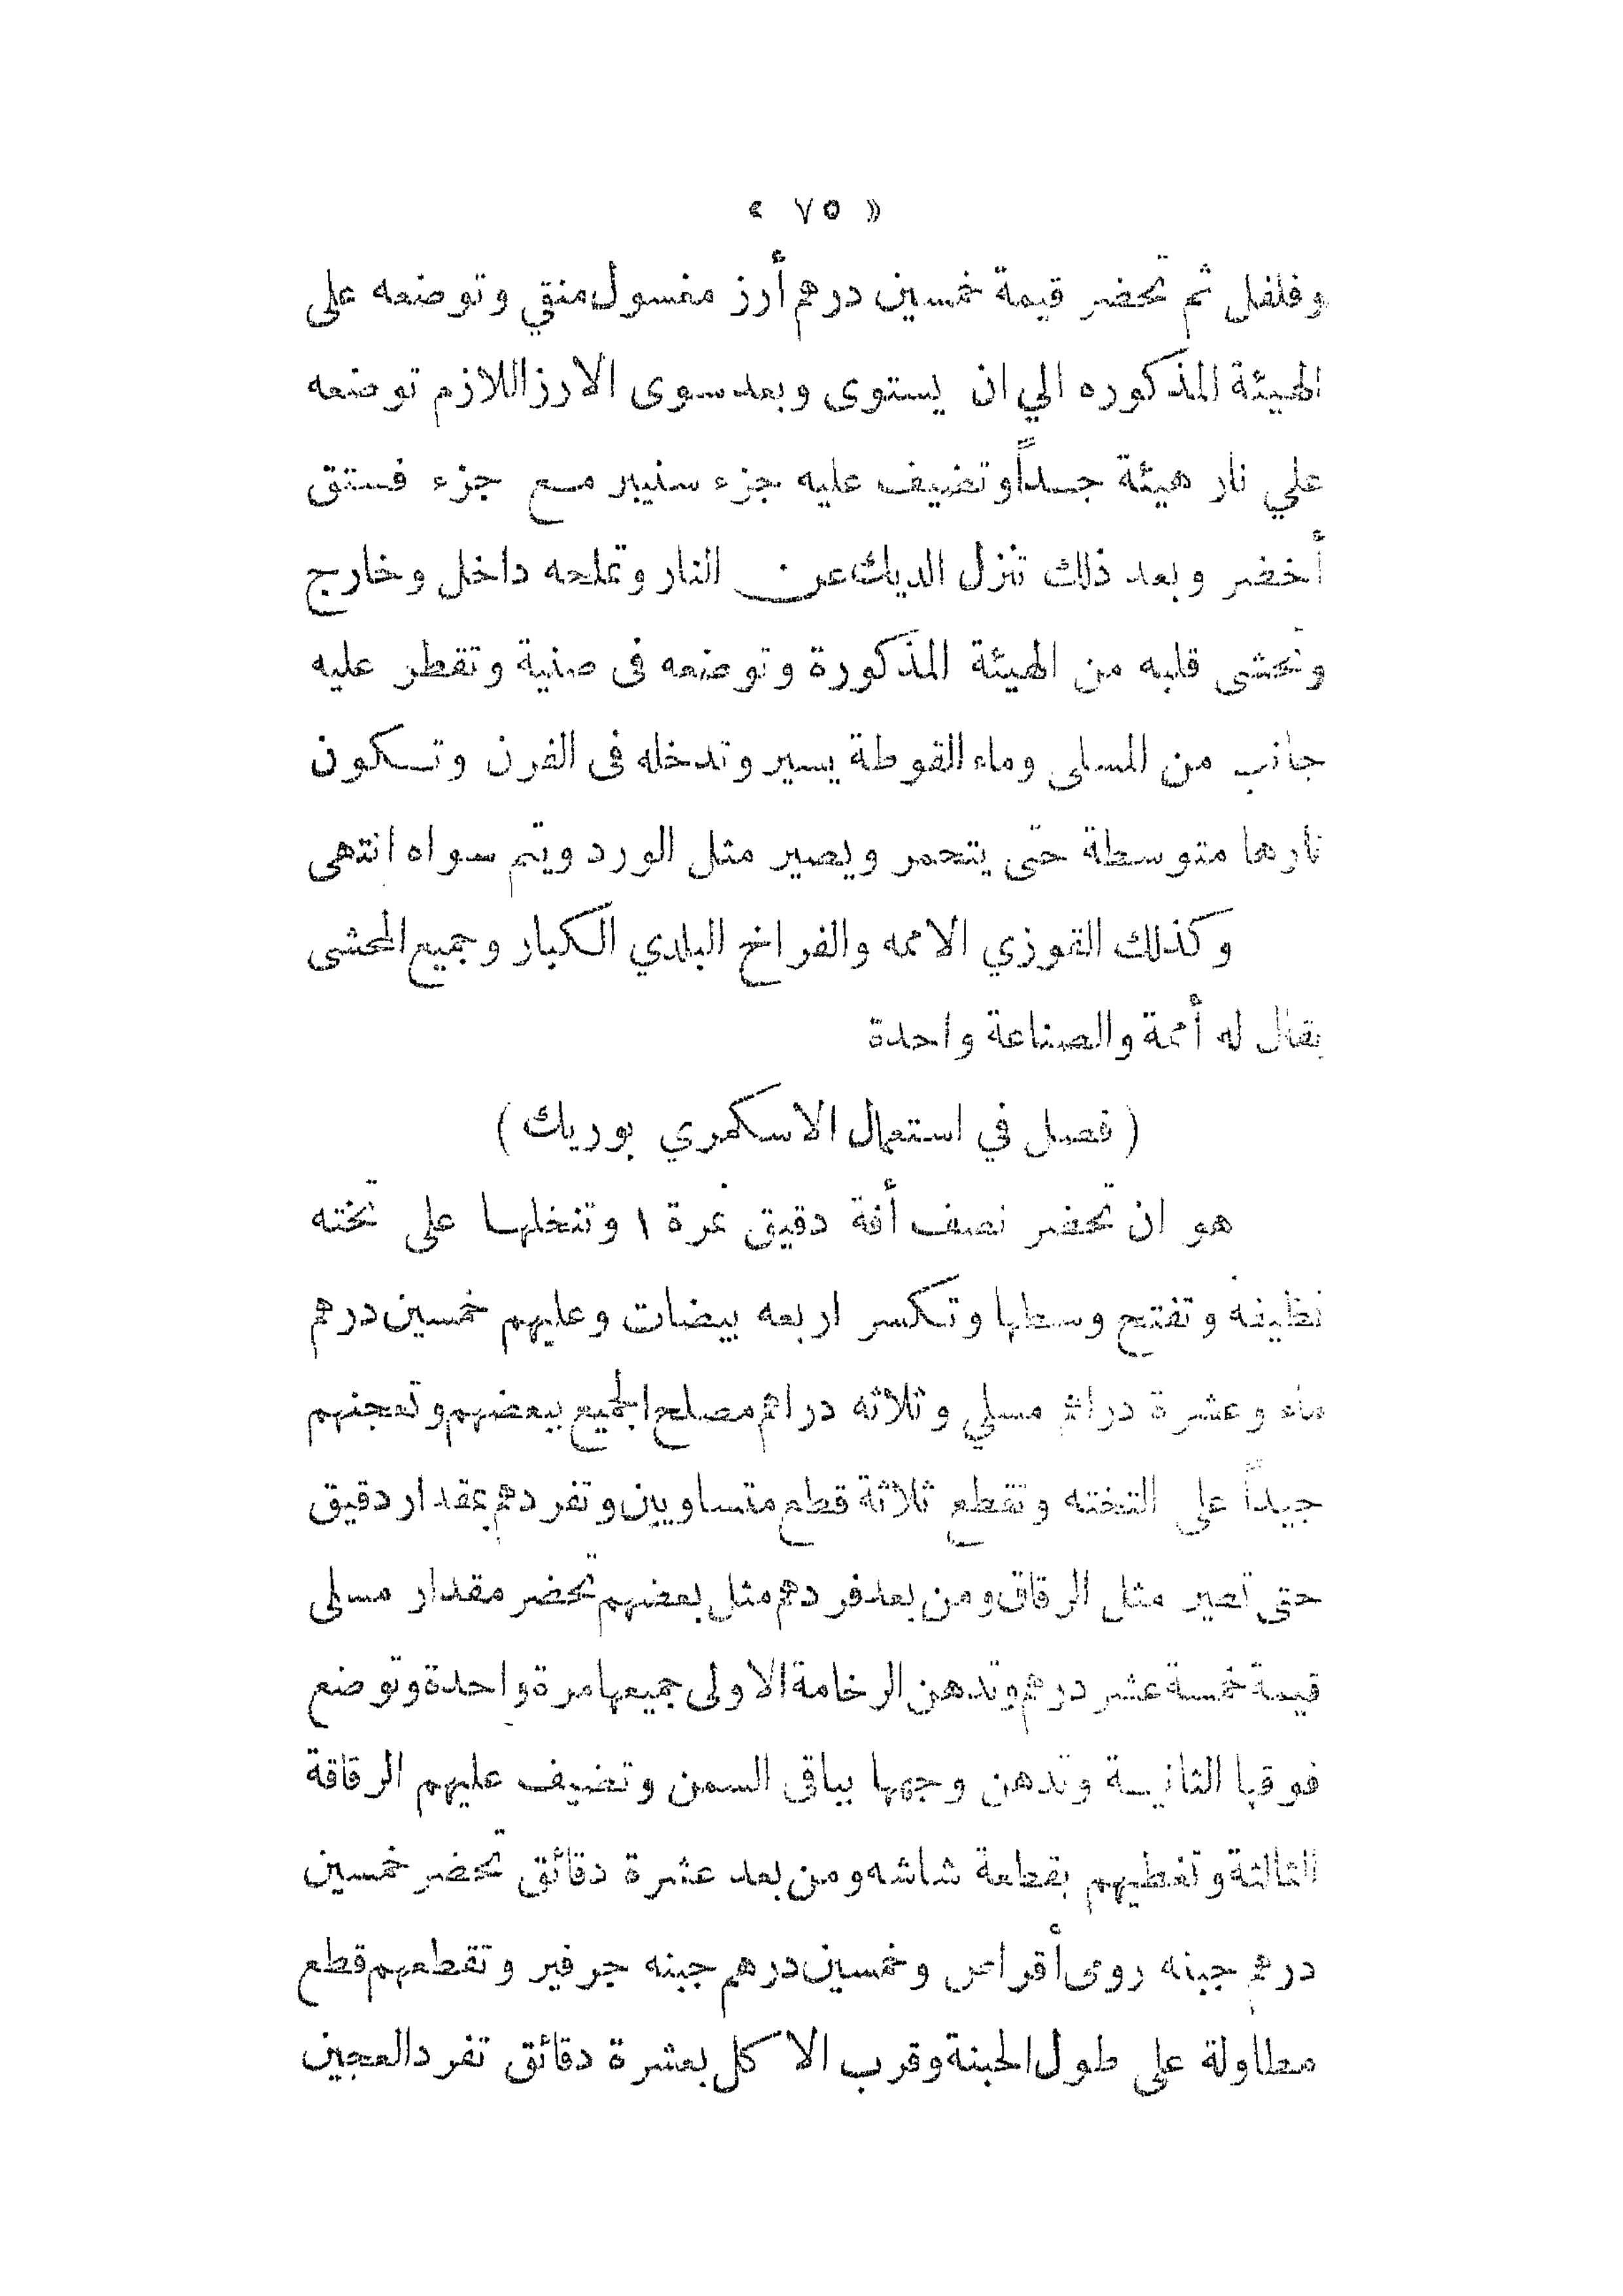 « ٧٥ »
وفلفل ثم تحضر قيمة خمسين درهم أرز مغسول منقي وتوضعه على
الهيئة المذكوره الي ان يستوى وبعد سوى الارز اللازم توضعه
علي نار هيئة جداً وتضيف عليه جزء سنيبر مع جزء فستق
أخضر وبعد ذلك تنزل الديك عن النار وتملحه داخل وخارج
وتحشى قلبه من الهيئة المذكورة وتوضعه فى صنية وتقطر عليه
جانب من المسلى وماء القوطة يسير وتدخله فى الفرن وتكون
نارها متوسطة حتى يتحمر ويصير مثل الورد ويتم سواه انتهى
وكذلك القوزي الاممه والفراخ البلدي الكبار وجميع المحشى
يقال له أممة والصناعة واحدة
( فصل في استعمال الاسكمري بوريك )
هو ان تحضر نصف أقة دقيق نمرة ١ وتنخلها على تخته
نظيفه وتفتح وسطها وتكسر اربعه بيضات وعليهم خمسين درهم
ماء وعشرة دراهم مسلي وثلاثه دراهم مصلح الجميع ببعضهم وتعجنهم
جيداً على التخته وتقطع ثلاثة قطع متساويين وتفردهم بمقدار دقيق
حتى تصير مثل الرقاق ومن بعد فردهم مثل بعضهم تحضر مقدار مسلى
قيمة خمسة عشر درهم وتدهن الرخامة الاولى جميعها مرة واحدة وتوضع
فوقها الثانية وتدهن وجهها بباقى السمن وتضيف عليهم الرقاقة
الثالثة وتغطيهم بقطعة شاشه ومن بعد عشرة دقائق تحضر خمسين
درهم جبنه روى أقراص وخمسين درهم جبنه جرفير وتقطعهم قطع
مطاولة على طول الجبنة وقرب الاكل بعشرة دقائق تفرد العجين